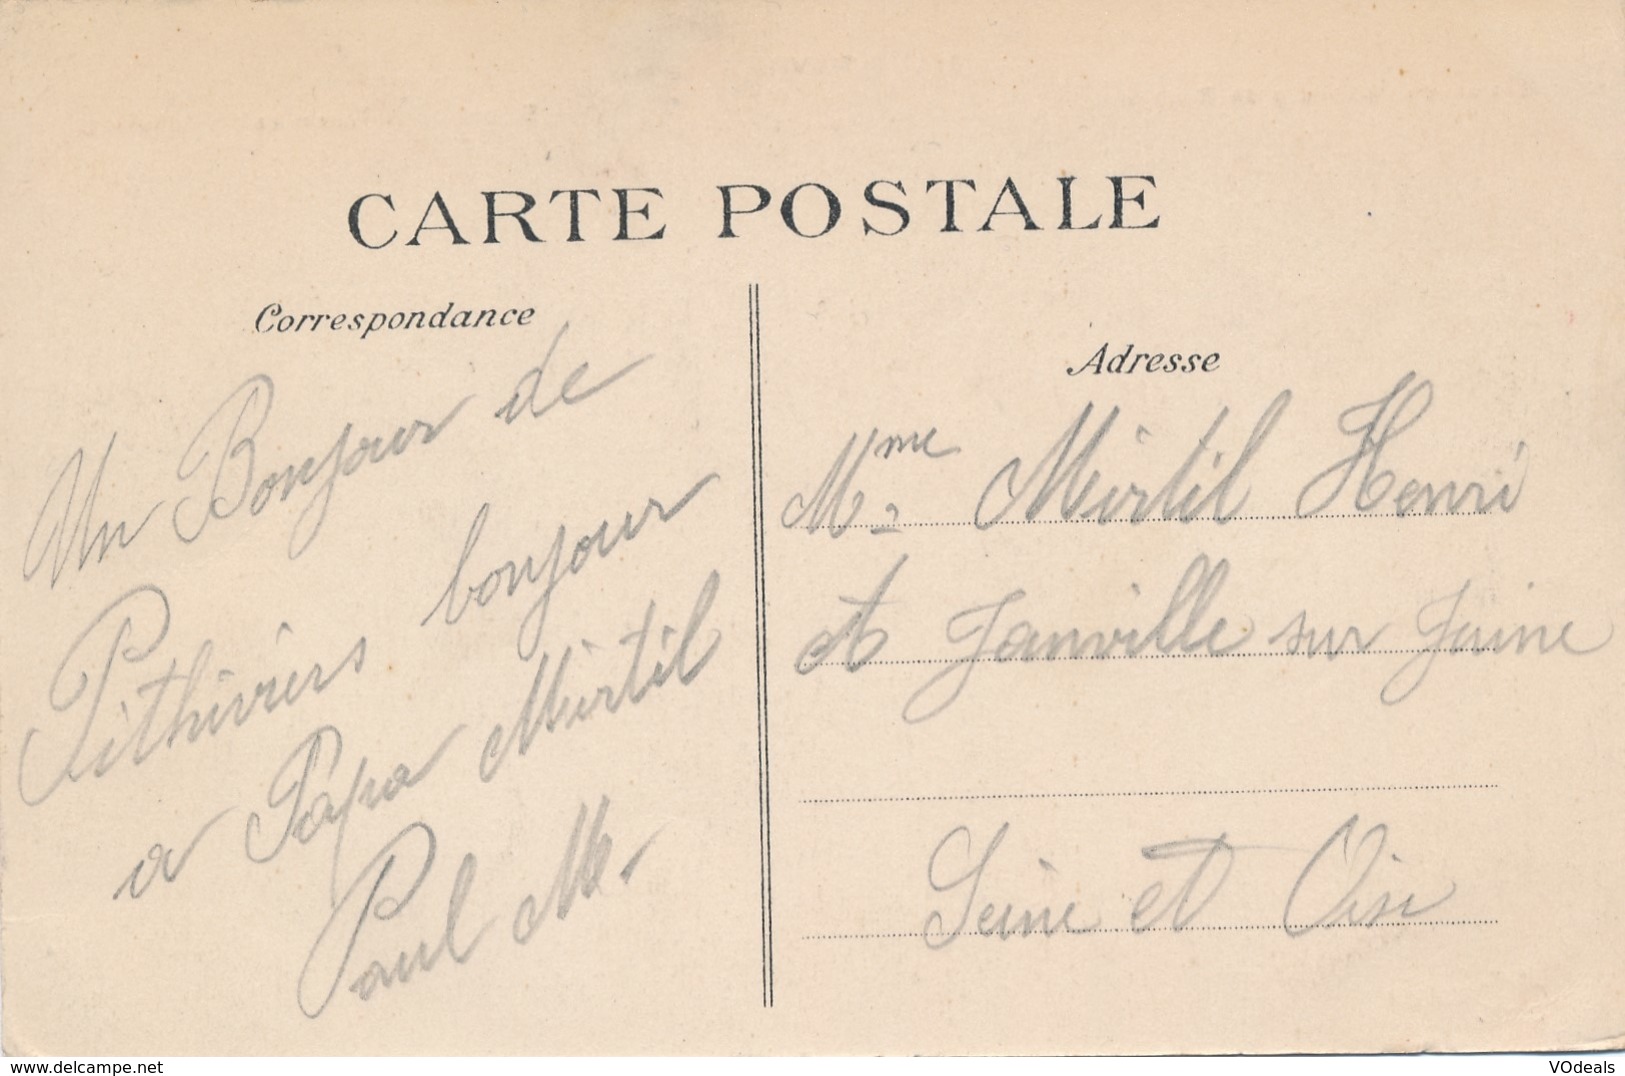 CARTE POSTALE
Correspondance
Un Bonjour de
Pithiviers bonjour
a Papa Mirtil
Paul M.
Adresse
Mme Mirtil Henri
A Janville sur Juine
Seine et Oise
delcampe.net
VOdeals